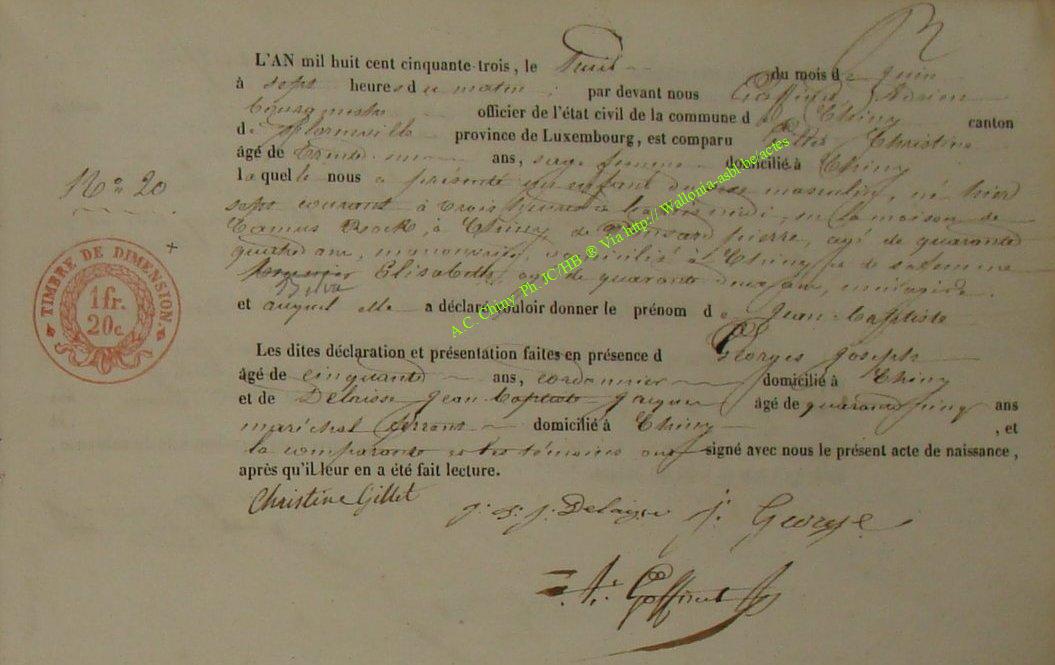 L'AN mil huit cent cinquante-trois, le huit du mois de juin
à sept heures du matin ; par devant nous Goffinet, Adrien
bourgmestre officier de l'état civil de la commune de Chiny canton
de Florenville province de Luxembourg, est comparu Gillet Christine
âgé de trente ans, sage femme domicilié à Chiny
laquelle nous a présenté un enfant de sexe masculin, né hier
N° 20
sept courant à trois heures à la maison de
Camus Rock, à Chiny, de pierre, agé de quarante
quatre ans, domicilié à Chiny et de sa femme
Elisabeth, agé de quarante deux ans, ménagère.
et auquel elle a déclaré vouloir donner le prénom de Jean-Baptiste
TIMBRE DE DIMENSION.
1 fr.
20c.
Les dites déclaration et présentation faites en présence d Georges Joseph
âgé de cinquante ans, cordonnier domicilié à Chiny
et de Jean Baptiste Jacques âgé de quarante cinq ans
maréchal ferrant domicilié à Chiny , et
la comparante et les témoins ont signé avec nous le présent acte de naissance,
après qu'il leur en a été fait lecture.
Christine Gillet
J. B. J. Delaisse J. George
A. Goffinet
A.C. Chiny Ph. JC/HB ® Via http:// Wallonia-asbl-be/actes